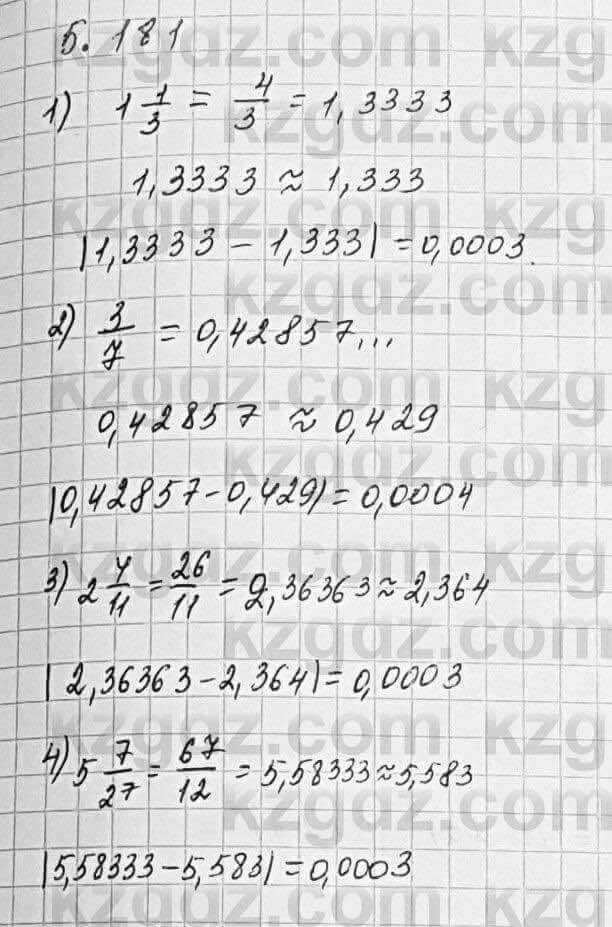 5.181
1) 1 1/3 = 4/3 = 1,3333
1,3333 ≈ 1,333
|1,3333 - 1,333| = 0,0003.
2) 3/7 = 0,42857...
0,42857 ≈ 0,429
|0,42857 - 0,429| = 0,0004
3) 2 4/11 = 26/11 = 2,36363 ≈ 2,364
|2,36363 - 2,364| = 0,0003
4) 5 7/27 = 67/12 = 5,58333 ≈ 5,583
|5,58333 - 5,583| = 0,0003